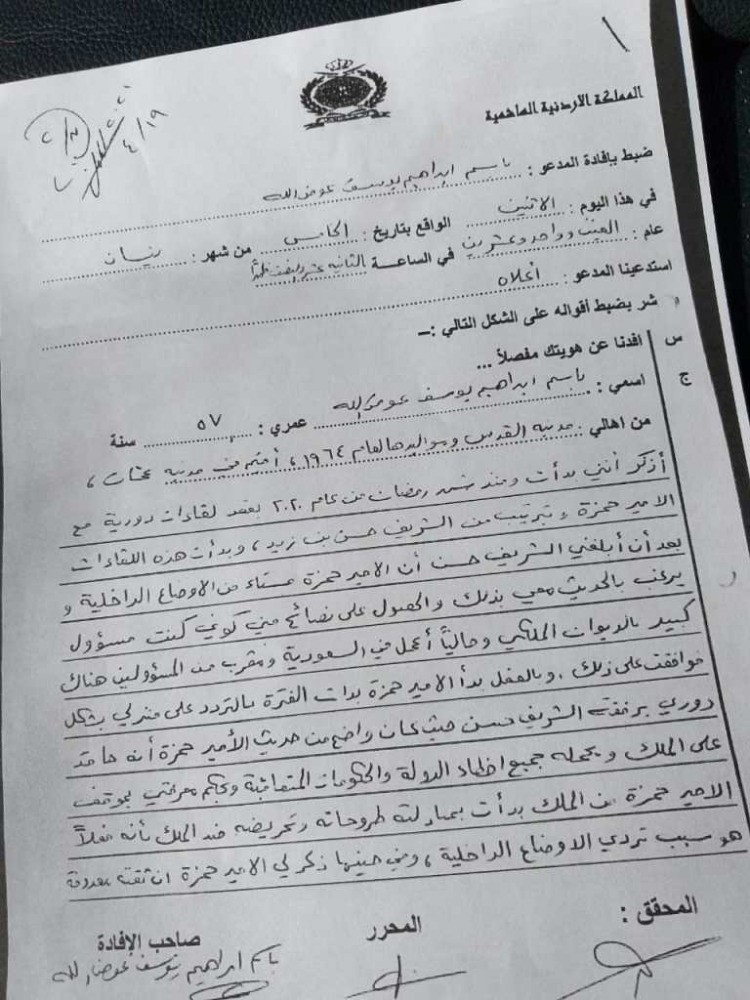 ١
٤/١٩
٢٠٢١
المملكة الاردنية الهاشمية
ضبط بإفادة المدعو : باسم ابراهيم يوسف عوض الله
في هذا اليوم : الاثنين الواقع بتاريخ : الخامس من شهر : نيسان
عام : الفين وواحد وعشرين في الساعة الثانية عشر ونصف ظهراً
استدعينا المدعو : أعلاه
شر بضبط أقواله على الشكل التالي :–
س افدنا عن هويتك مفصلاً ...
ج اسمي : باسم ابراهيم يوسف عوض الله عمري : ٥٧ سنة
من اهالي : مدينة القدس ومواليدها لعام ١٩٦٤ ، أقيم في مدينة عمان ،
أذكر أنني بدأت ومنذ شهر رمضان من عام ٢٠٢٠ بعقد لقاءات دورية مع
الامير حمزة وبترتيب من الشريف حسن بن زيد ، وبدأت هذه اللقاءات
بعد أن أبلغني الشريف حسن أن الامير حمزة مستاء من الاوضاع الداخلية و
يرغب بالحديث معي بذلك والحصول على نصائح مني كوني كنت مسؤول
كبير بالديوان الملكي وحالياً أعمل في السعودية ومقرب من المسؤولين هناك
فوافقت على ذلك . وبالفعل بدأ الامير حمزة بذات الفترة بالتردد على منزلي بشكل
دوري برفقة الشريف حسن حيث كان واضح من حديث الأمير حمزة أنه حاقد
على الملك و يحمله جميع اخطاء الدولة والحكومات المتعاقبة وبحكم معرفتي بموقف
الامير حمزة من الملك بدأت بمبادلته طروحاته وتحريضه ضد الملك بأنه فعلاً
هو سبب تردي الاوضاع الداخلية ، وفي حينها ذكر لي الامير حمزة ان ثقته معدومة
المحقق : المحرر صاحب الإفادة
باسم ابراهيم يوسف عوض الله